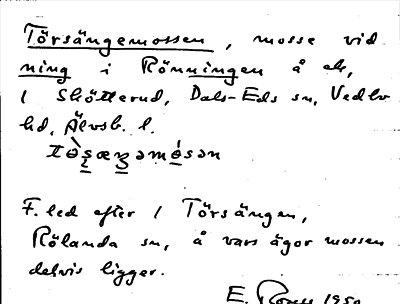 Törsängemossen, mosse vid
ning i Rönningen å ek,
1 Skötterud, Dals-Eds sn, Vedbo
hd, Älvsb. l.
F. led efter 1 Törsängen,
Rölanda sn, å vars ägor mossen
delvis ligger.
E. 1950